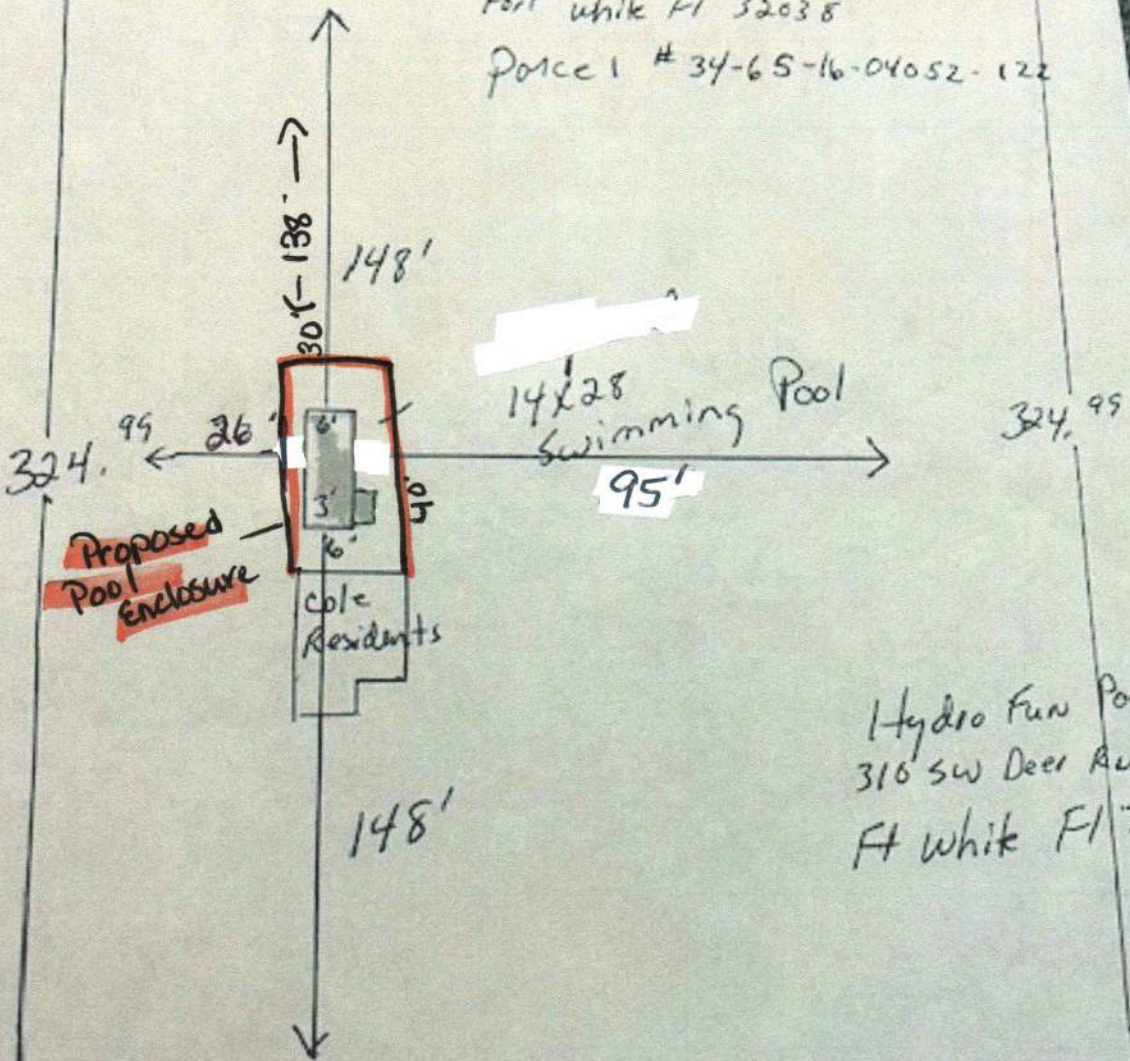 Fort white Fl 32038
Parcel # 34-65-16-04052-122
← 138' →
30'
148'
14x28
Swimming Pool
324.99
26'
6'
95'
324.99
3'
40'
6'
Proposed
Pool
Enclosure
Cole
Residents
148'
Hydro Fun
310 SW Deer
Ft white Fl